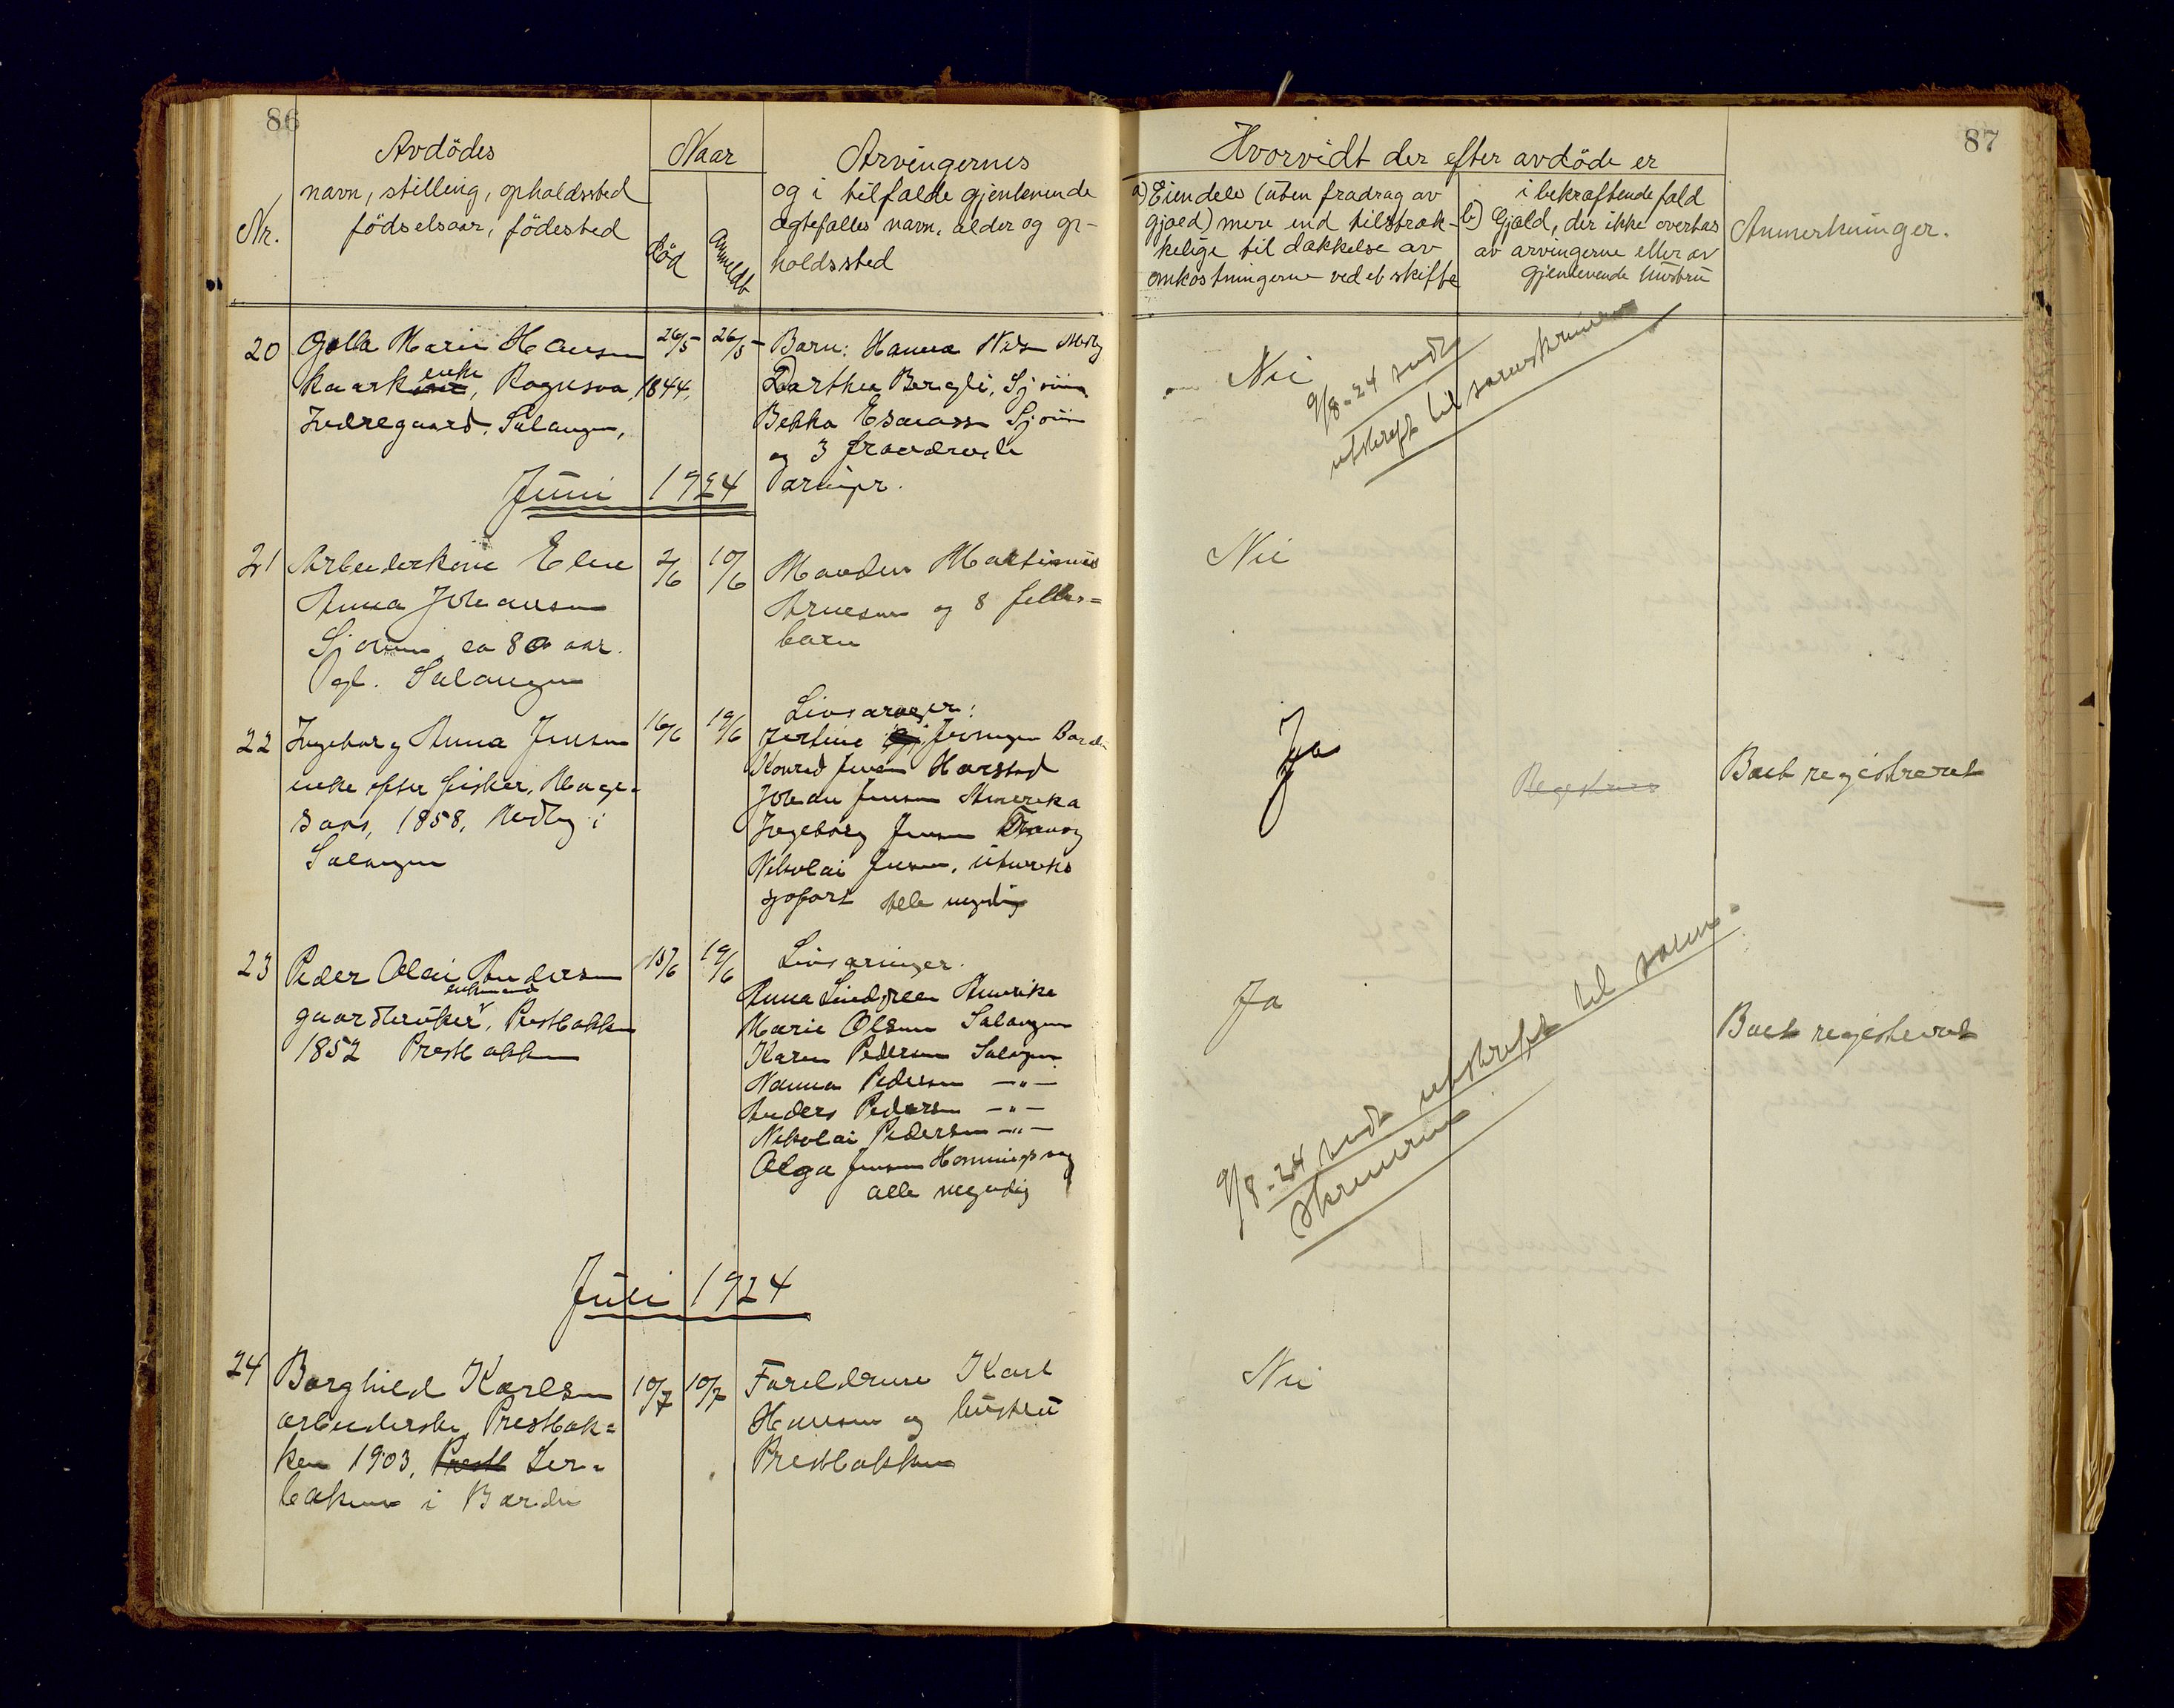 86
Avdödes
navn, stilling, opholdssted
födselsaar, födested
Nr.
Naar
död
Anmeldt
Arvingernes
og i tilfælde gjenlevende
ægtefælles navn, alder og op-
holdssted
20
Golla Marie Hansen
enke, Ragnsoa, 1844,
Indregaard, Salangen,
26/5
26/5
Barn: Hanna
Darthea Bergli, Sjøvein
Bekka Esaiassen Sjøvein
og 3 fraværende
Juni 1924
21
Arbeiderkone Elen
Anna Johansen
Sjøvein, ca 80 aar.
Salangen
2/6
10/6
Manden Martinius
Arnesen og 8 felles-
barn
22
Ingeborg Anna Jensen
enke efter fisker,
1858, i
Salangen
16/6
19/6
Livsarvinger:
Jertine Bardu
Konrad Jensen Harstad
Johan Jensen Amerika
Ingeborg Jensen
Nikolai Jensen, utenriks
sjøfart alle myndig
23
Peder Olai Andersen
enkemand
gaardbruker, Prestbakken
1852 Prestbakken
19/6
Livsarvinger.
Anna Lindgreen Amerika
Marie Olsen Salangen
Karen Pedersen Salangen
Hanna Pedersen —"—
Anders Pedersen —"—
Nikolai Pedersen —"—
Olga Jensen Honningsvaag
alle myndig
Juli 1924
24
Borghild Karlsen
arbeiderske, Prestbak-
ken 1903, Prestb Ler-
bakken i Bardu
10/7
10/7
Foreldrene Karl
Hansen og hustru
Prestbakken
87
Hvorvidt der efter avdöde er
a) Eiendele (uten fradrag av
gjæld) mere end tilstræk-
kelige til dækkelse av
omkostningerne ved et skifte
i bekræftende fald
b) Gjæld, der ikke overtas
av arvingerne eller av
gjenlevende hustru
Anmerkninger.
Nei
9/8-24 sendt
utskrift til sorenskriveren
Nei
Ja
Registreres
Boet registreret
Ja
Boet registreret
9/8-24 sendt utskrift til soren-
skriveren
Nei